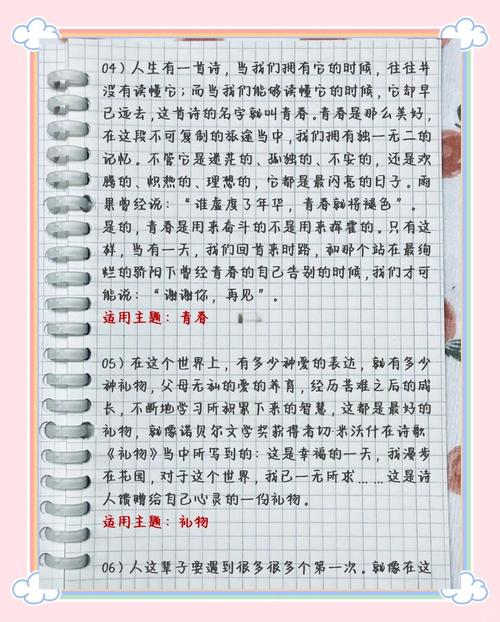 04）人生有一首诗，当我们拥有它的时候，往往并
没有读懂它；而当我们能够读懂它的时候，它却早
已远去，这首诗的名字就叫青春。青春是那么美好，
在这段不可复制的旅途当中，我们拥有独一无二的
记忆。不管它是迷茫的、孤独的、不安的，还是欢
腾的、炽热的、理想的，它都是最闪亮的日子。雨
果曾经说：“谁虚度了年华，青春就将褪色”。
是的，青春是用来奋斗的不是用来挥霍的。只有这
样，当有一天，我们回首来时路，和那个站在最绚
烂的骄阳下曾经青春的自己告别的时候，我们才可
能说：“谢谢你，再见”。
适用主题：青春
05）在这个世界上，有多少种爱的表达，就有多少
种礼物，父母无私的爱的养育，经历苦难之后的成
长，不断地学习所积累下来的智慧，这都是最好的
礼物，就像诺贝尔文学奖获得者切·米沃什在诗歌
《礼物》当中所写到的：这是幸福的一天，我漫步
在花园，对于这个世界，我已一无所求……这是诗
人馈赠给自己心灵的一份礼物。
适用主题：礼物
06）人这辈子要遇到很多很多个第一次。就像在这